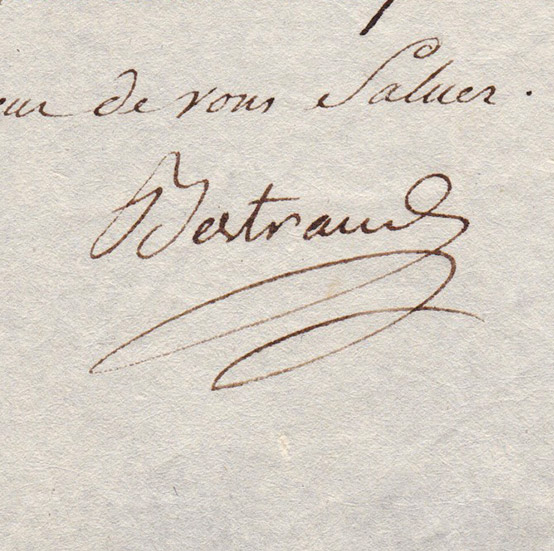 eur de vous Saluer.
Bertrand